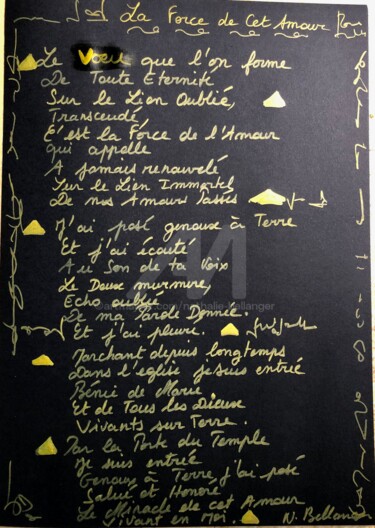 La Force de Cet Amour
Le Voeu que l'on forme
De Toute Eternité
Sur le Lien Oublié,
Transcendé,
C'est la Force de l'Amour
qui appelle
A jamais renouvelé
Sur le Lien Immortel
De nos Amours Passés
J'ai posé genoux à Terre
Et j'ai écouté
Au Son de ta Voix
Le Doux murmure,
Echo oublié
De ma Parole Donnée.
Et j'ai pleuré.
Marchant depuis longtemps
Dans l'eglise je suis entré
Bénie de Marie
Et de Tous les Dieux
Vivants sur Terre.
Par la Porte du Temple
Je suis entrée
Genoux à Terre j'ai posé
Salué et Honoré
Le Miracle de cet Amour
Vivant en Moi
N. Bellanger